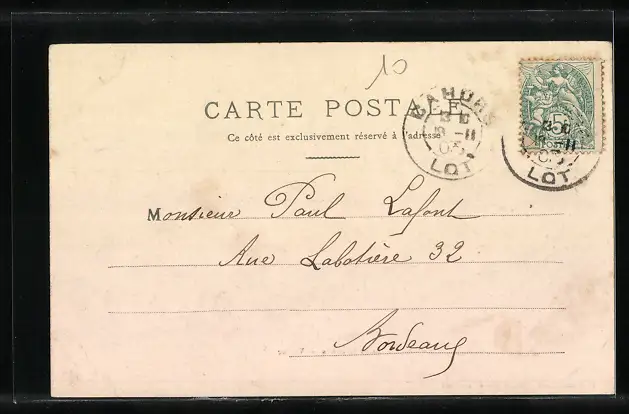 10
CARTE POSTALE
Ce côté est exclusivement réservé à l'adresse
CAHORS
LOT
5
LOT
Monsieur Paul Lafont
Rue Labotière 32
Bordeaux